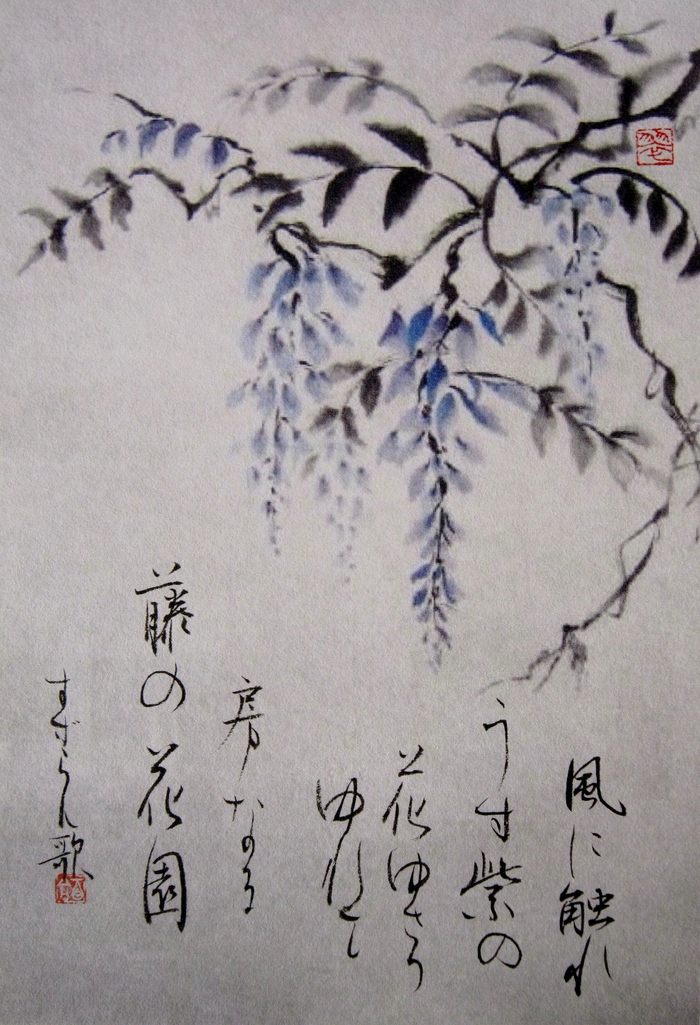 風に触れ
うす紫の
花ゆらり
ゆれ
房なる
藤の花園
すずらん歌